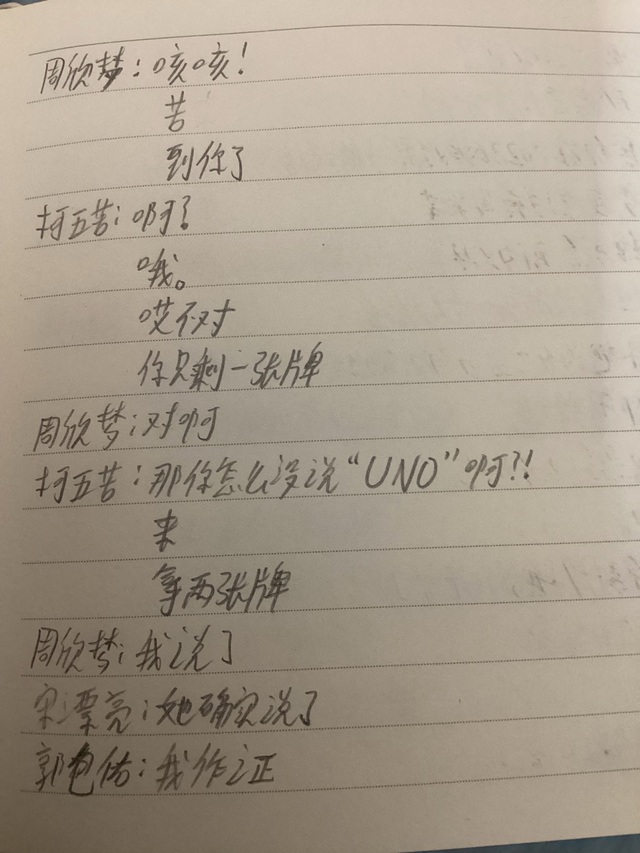 周欣梦：咳咳！
苦
到你了
柯五苦：啊？
哦。
哎不对
你只剩一张牌
周欣梦：对啊
柯五苦：那你怎么没说“UNO”啊?!
来
拿两张牌
周欣梦：我说了
宋漂亮：她确实说了
郭包佑：我作证